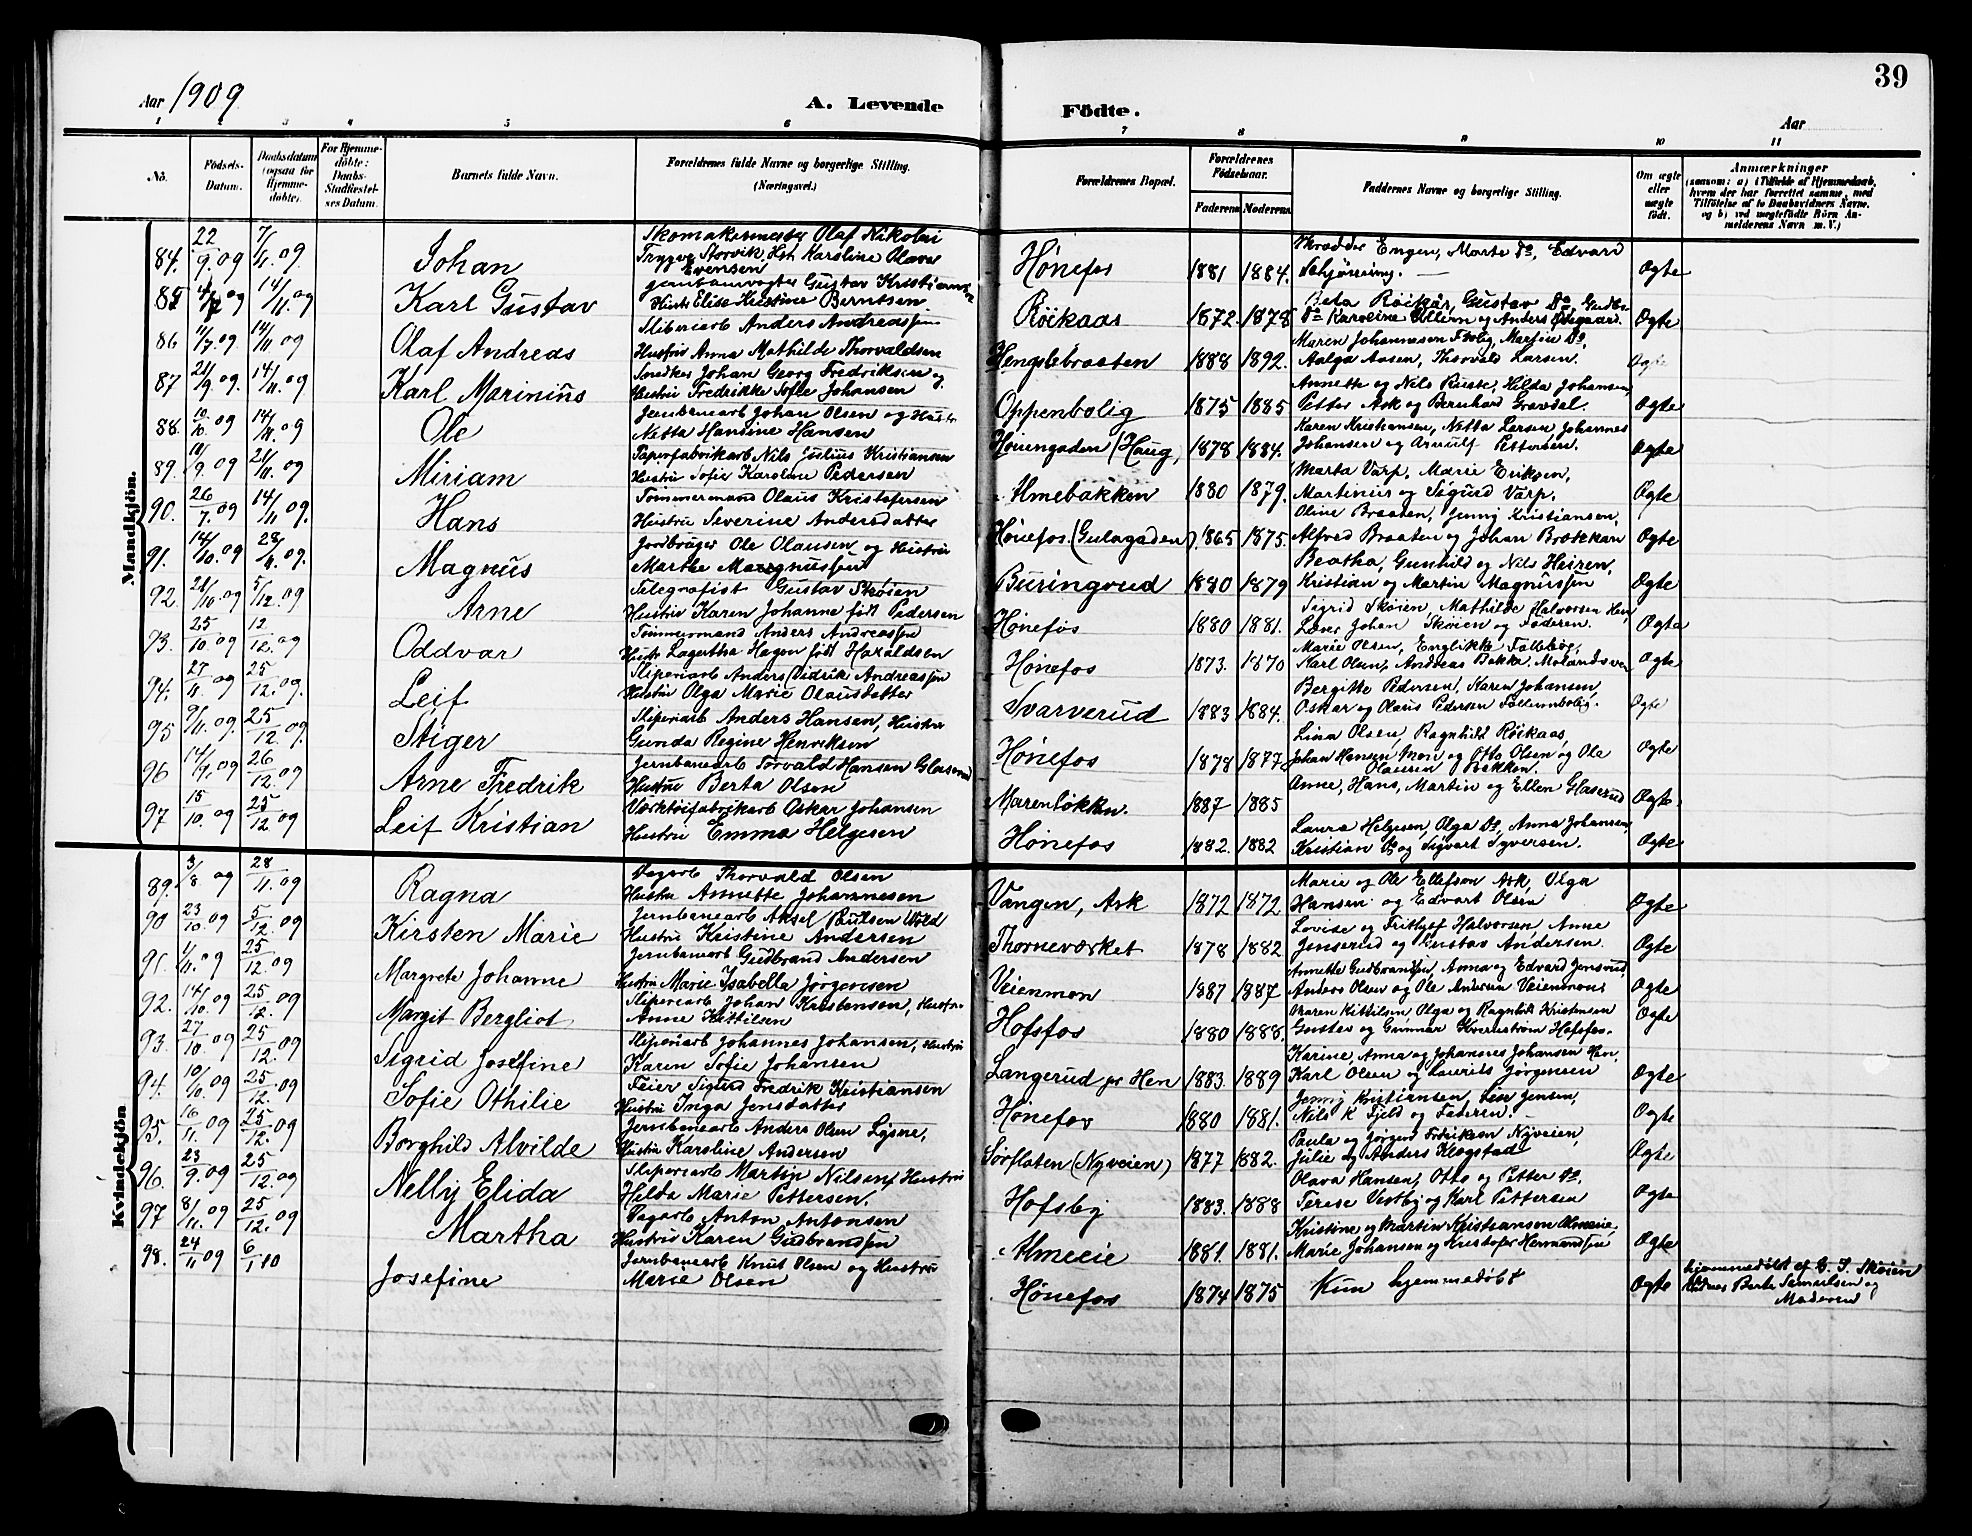 Aar 1909
A. Levende
Födte.
39
Aar
1 2 3 4 5 6 7 8 9 10 11
No.
Födsels-
Datum.
Daabsdatum
(ogsaa for
Hjemme-
döbte).
For Hjemme-
döbte:
Daabs-
Stadfæstel-
ses Datum.
Barnets fulde Navn.
Forældrenes fulde Navne og borgerlige Stilling.
(Næringsvei.)
Forældrenes Bopæl.
Forældrenes
Fødselsaar.
Faderens
Moderens
Faddernes Navne og borgerlige Stilling.
Om ægte
eller
uægte
født.
Anmærkninger
(saasom: a) i Tilfælde af Hjemmedaab,
hvem der har forrettet samme, med
Tilføielse af to Daabsvidners Navne,
og b) ved uægtefødte Börn An-
melderens Navn m. V.)
Mandkjön.
84. 22/9 09 7/11 09. Johan
Skomakermester Olaf Nikolai
Trygve Storvik, Hst. Karoline Olava
Evensen
Hønefos 1881 1884.
Engen, Marte Do, Edvard
Schjørring.
Ægte
85 09 14/11 09 Karl Gustav
Jernbanevogter Gustav Kristiansen
Hustr Elise Kristine Berntsen
Röikaas 1872. 1878
Beta Röikås, Gustav Do,
Do Karoline Ullern og Anders Ødegaard.
Ægte
86 11/7 09. 14/11 09 Olaf Andreas
Sliberiarb Anders Andreassen
Hustru Anna Mathilde Thorvaldsen
Hengslebraaten 1888 1892.
Maren Johannesen Follig, Martin Do,
Aalga Aasen, Thorvald Larsen.
Ægte
87 21/9 09. 14/11 09 Karl Marinius
Snedker Johan Georg Fredriksen og
Hustru Fredrikke Sofie Johansen
Oppenbolig 1875 1885
Annette og Nils Ruste, Hilda Johansen,
Petter Ask og Bernhard Gravdal.
Ægte
88. 10/10 09 14/11 09 Ole
Jernbanearb Johan Olsen og Hustr
Netta Hansine Hansen
Hønengaden (Haug) 1878 1884.
Karen Kristiansen, Netta Larsen Johannes
Johansen og Arnulf Pettersen.
Ægte
89. 10/9 09 21/11 09 Miriam
Papirfabrikarb Nils Julius Kristiansen
Hustru Sofie Karoline Pedersen
Almebakken 1880 1879.
Marta Varp, Marie Eriksen,
Martinius og Sigurd Varp.
Ægte
90. 26/7. 09 14/11 09. Hans
Tømmermand Olaus Kristofersen
Hustru Severine Andersdatter
Hønefos (Gulagaden). 1865 1875.
Oline Braaten, Jenny Kristiansen,
Alfred Braaten og Johan Brækkan
Ægte
91. 14/10 09 28/11 09. Magnus
Jordbruger Ole Olausen og Hustru
Marthe Magnussen
Buringrud 1880 1879
Beatha, Gunhild og Nils Heiren,
Kristian og Martin Magnussen
Ægte
92. 21/10 09 5/12. 09 Arne
Telegrafist Gustav Skøien
Hustru Karen Johanne født Pedersen
Hønefos 1880 1881.
Sigrid Skøien, Mathilde Halvorsen Hen,
Lærer Johan Skøien og Faderen.
Ægte
93. 25/10 09 12/12. 09 Oddvar
Tømmermand Anders Andreassen
Hustr Lagertha Hagen født Haraldsen
Hønefos 1873. 1870
Marie Olsen, Englikke Follebøg,
Karl Olsen, Andreas Bakka
Ægte
94. 27/11 09 25/12. 09. Leif
Sliperiarb Anders Didrik Andreassen
Hustru Olga Marie Olausdatter
Svarverud 1883 1884.
Bergitte Pedersen, Karen Johansen,
Oskar og Olaus Pedersen Follumbolig.
Ægte
95 9/11 09. 25/12 09. Stiger
Sliperiarb Anders Hansen, Hustru
Gunda Regine Henriksen
Hønefos 1878 1877
Lina Olsen, Ragnhild Röikaas,
Johan Hansen Mon og Otto Olsen og Ole
Olausen Bakken.
Ægte
96 14/9. 09 26/12. 09 Arne Fredrik
Jernbanearb Torvald Hansen Glaserud
Hustru Berta Olsen
Marenløkken. 1887 1885
Anne, Hans, Martin og Ellen Glaserud
Ægte
97. 15/10. 09 25/12 09 Leif Kristian
Værktøifabrikarb Oskar Johansen
Hustru Emma Helgesen
Hønefos 1882. 1882
Laura Helgesen, Olga Do, Anna Johansen,
Kristian Do og Sigvart Syversen.
Ægte
Kvindekjön
89. 3/8 09 28/11. 09 Ragna
Dagarb Thorvald Olsen
Hustru Annette Johannesen
Vangen, Ask 1872 1872
Marie og Ole Ellefsen Ask, Olga
Hansen og Edvart Olsen
Ægte
90 23/10 09 5/12 09 Kirsten Marie
Jernbanearb Aksel Paulsen Wold
Hustru Kristine Andersen
Thorneværket 1878 1882
Lovise og Frithjof Halvorsen, Anne
Jenserud og Gustav Andersen.
Ægte
91. 1/11. 09 25/12. 09 Margrete Johanne
Jernbanearb Gudbrand Andersen
Hustru Marie Isabella Jørgensen
Veienmon 1887 1887
Annette Gudbrandsen, Anna og Edvard Jenserud
Anders Olsen og Ole Andersen Veienmons
Ægte
92. 14/10. 09 25/12 09 Margit Bergliot
Sliperiarb Johan Karstensen, Hustru
Anne Kittilsen
Hofsfos 1880 1888.
Maren Kittilsen, Olga og Ragnhild Kristensen
Gustav og Gunnar Kvernstrøm Hofsfos.
Ægte
93. 27/10. 09 25/12. 09 Sigrid Josefine
Sliperiarb Johannes Johansen, Hustru
Karen Sofie Johansen
Langerud pr Hen 1883. 1889
Karine, Anna og Johannes Johansen Hen,
Karl Olsen og Laurits Jørgensen
Ægte
94. 10/10 09 25/12. 09 Sofie Othilie
Feier Sigurd Fredrik Kristiansen
Hustru Inga Jensdatter
Hønefos 1880 1881.
Jenny Kristiansen, Lin Jensen,
Nils K Fjeld og Faderen.
Ægte
95. 16/11. 09 25/12. 09 Borghild Alvilde
Jernbanearb Anders Olsen Lysne,
Hustru Karoline Andersen
Sørflaten (Nyveien) 1877 1882.
Paula og Jørgen Fredriksen Nyveien,
Julie og Anders Klægstad
Ægte
96. 23/9. 09 25/12. 09 Nelly Elida
Sliperiarb Martin Nilsen, Hustru
Hilda Marie Pettersen.
Hofsby 1883. 1888
Olava Hansen, Otto og Petter Do,
Terese Vestby og Karl Pettersen
Ægte
97 8/11. 09 25/12. 09 Martha
Dagarb Anton Antonsen
Hustru Karen Gudbrandsen
Almeeie 1881. 1881.
Kristine og Martin Kristiansen Almeeie,
Marie Johansen og Kristofer Hermandsen
Ægte
98. 24/11 09 6/1 10 Josefine
Jernbanearb Knut Olsen og Hustru
Marie Olsen
Hønefos 1874 1875
Kun hjemmedøbt
Ægte
hjemmedøbt af G. S. Skøien
Vidnes Berte Samuelsen og
Moderen